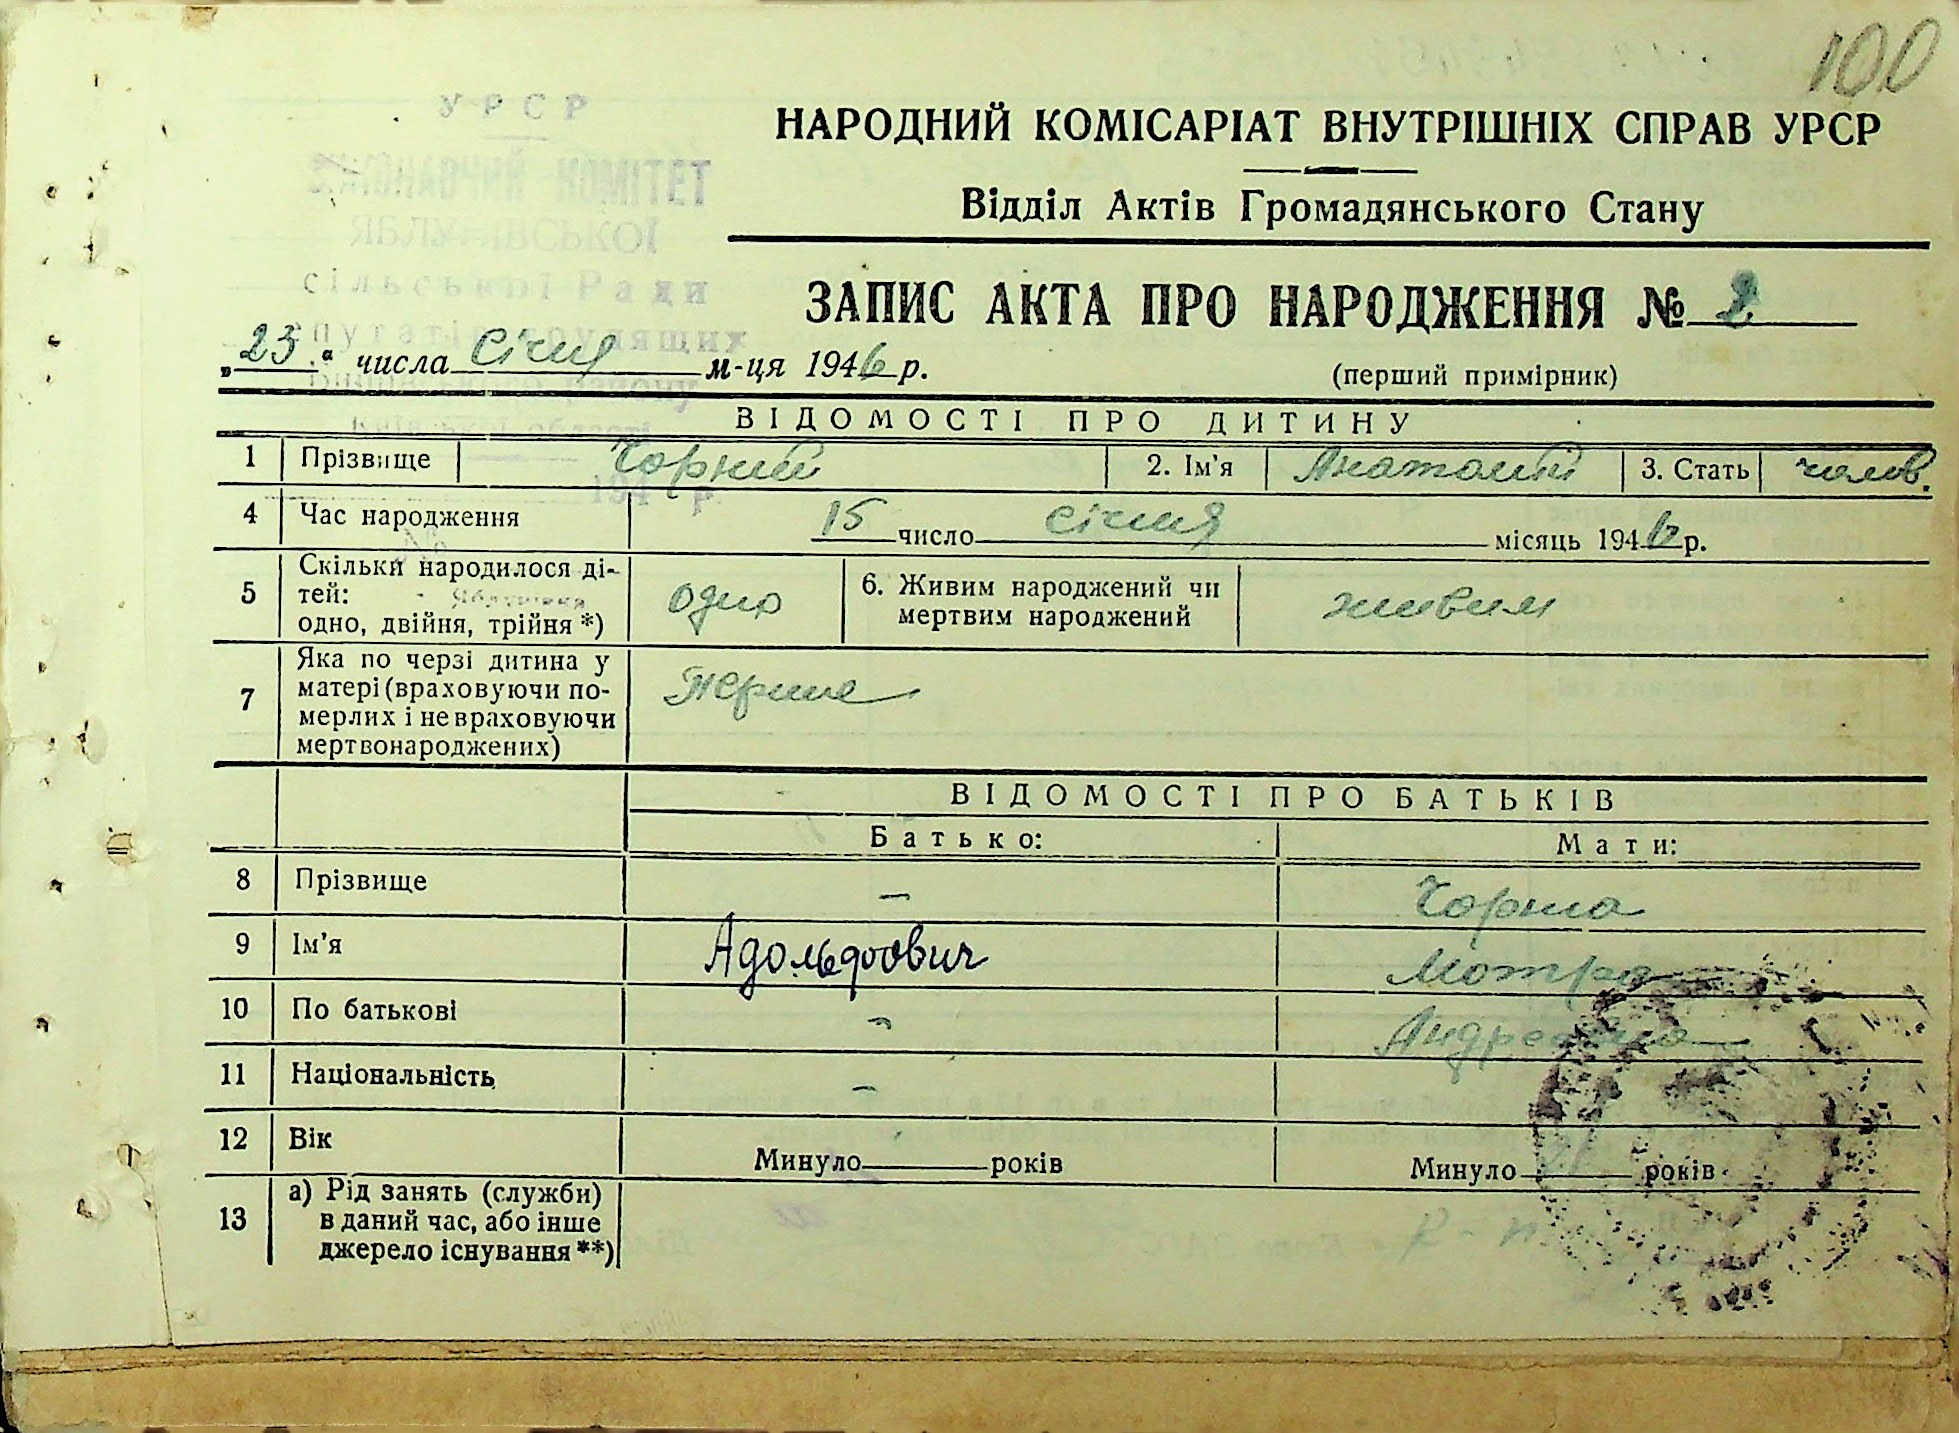 100
УРСР
ВИКОНАВЧИЙ КОМІТЕТ
ЯБЛУНІВСЬКОЇ
сільської Ради
депутатів трудящих
району
Київської області
194 р.
НАРОДНИЙ КОМІСАРІАТ ВНУТРІШНІХ СПРАВ УРСР
Відділ Актів Громадянського Стану
ЗАПИС АКТА ПРО НАРОДЖЕННЯ № 2
„23“ числа Січня м-ця 1946 р.
(перший примірник)
ВІДОМОСТІ ПРО ДИТИНУ
1 Прізвище Чорний 2. Ім'я Анатолій 3. Стать чолов.
4 Час народження 15 число січня місяць 1946 р.
5 Скільки народилося ді-
тей:
одно, двійня, трійня *) одно 6. Живим народжений чи
мертвим народжений живим
7 Яка по черзі дитина у
матері (враховуючи по-
мерлих і не враховуючи
мертвонароджених) Перше
ВІДОМОСТІ ПРО БАТЬКІВ
Батько: Мати:
8 Прізвище — Чорна
9 Ім'я Адольфович Мотря
10 По батькові — Андреевна
11 Національність —
12 Вік Минуло років Минуло років
13 а) Рід занять (служби)
в даний час, або інше
джерело існування **)